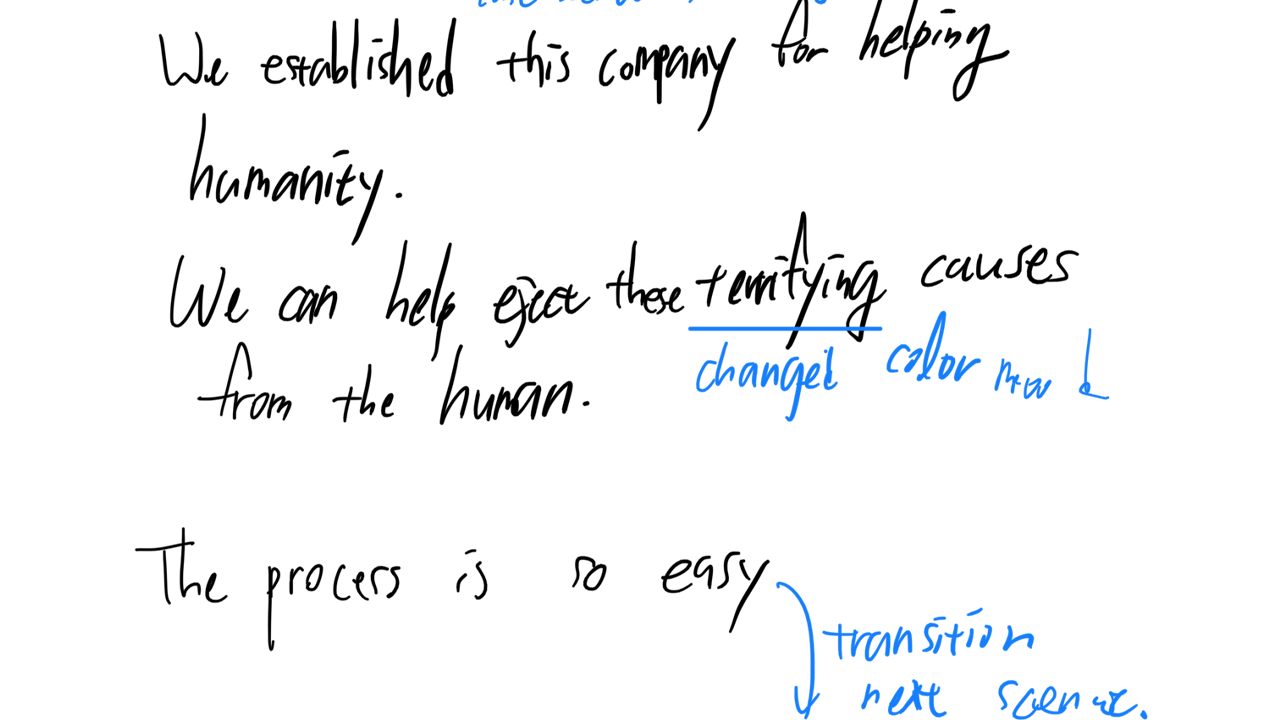 We established this company for helping
humanity.
We can help eject these terrifying causes
changed color
from the human.
The process is so easy
transition
next scene.